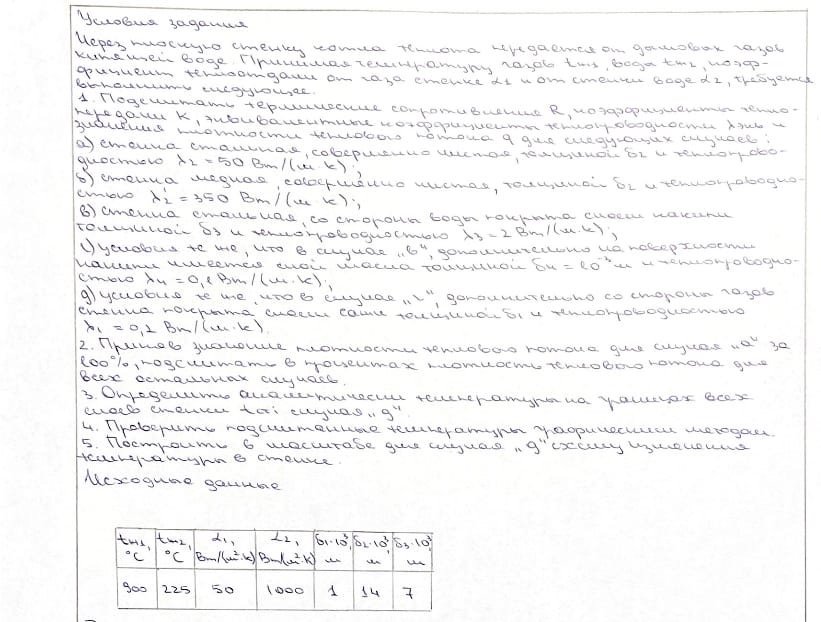 Условия задания
Через плоскую стенку котла теплота передается от дымовых газов
кипящей воде. Принимая температуру газов tж1, вода tж2, коэф-
фициент теплоотдачи от газа стенке α1 и от стенки воде α2, требуется
выполнить следующее.
1. Подсчитать термические сопротивления R, коэффициенты тепло-
передачи K, эквивалентные коэффициенты теплопроводности λэкв и
значения плотности теплового потока q для следующих случаев:
а) стенка стальная, совершенно чистая, толщиной δ2 и теплопрово-
дностью λ2 = 50 Вт/(м·к);
б) стенка медная, совершенно чистая, толщиной δ2 и теплопроводно-
стью λ2' = 350 Вт/(м·к);
в) стенка стальная, со стороны воды покрыта слоем накипи
толщиной δ3 и теплопроводностью λ3 = 2 Вт/(м·к);
г) условия те же, что в случае „в", дополнительно на поверхности
накипи имеется слой масла толщиной δ4 = 10⁻³ м и теплопроводно-
стью λ4 = 0,1 Вт/(м·к);
д) условия те же, что в случае „г", дополнительно со стороны газов
стенка покрыта слоем сажи толщиной δ1 и теплопроводностью
λ1 = 0,2 Вт/(м·к).
2. Приняв значение плотности теплового потока для случая „а" за
100%, подсчитать в процентах плотность теплового потока для
всех остальных случаев.
3. Определить аналитически температуры на границах всех
слоев стенки tсті случая „д".
4. Проверить подсчитанные температуры графическим методом.
5. Построить в масштабе для случая „д" схему изменения
температуры в стенке.
Исходные данные
tж1, °C tж2, °C α1, Вт/(м²·к) α2, Вт/(м²·к) δ1·10³, м δ2·10³, м δ3·10³, м
900 225 50 1000 1 14 7